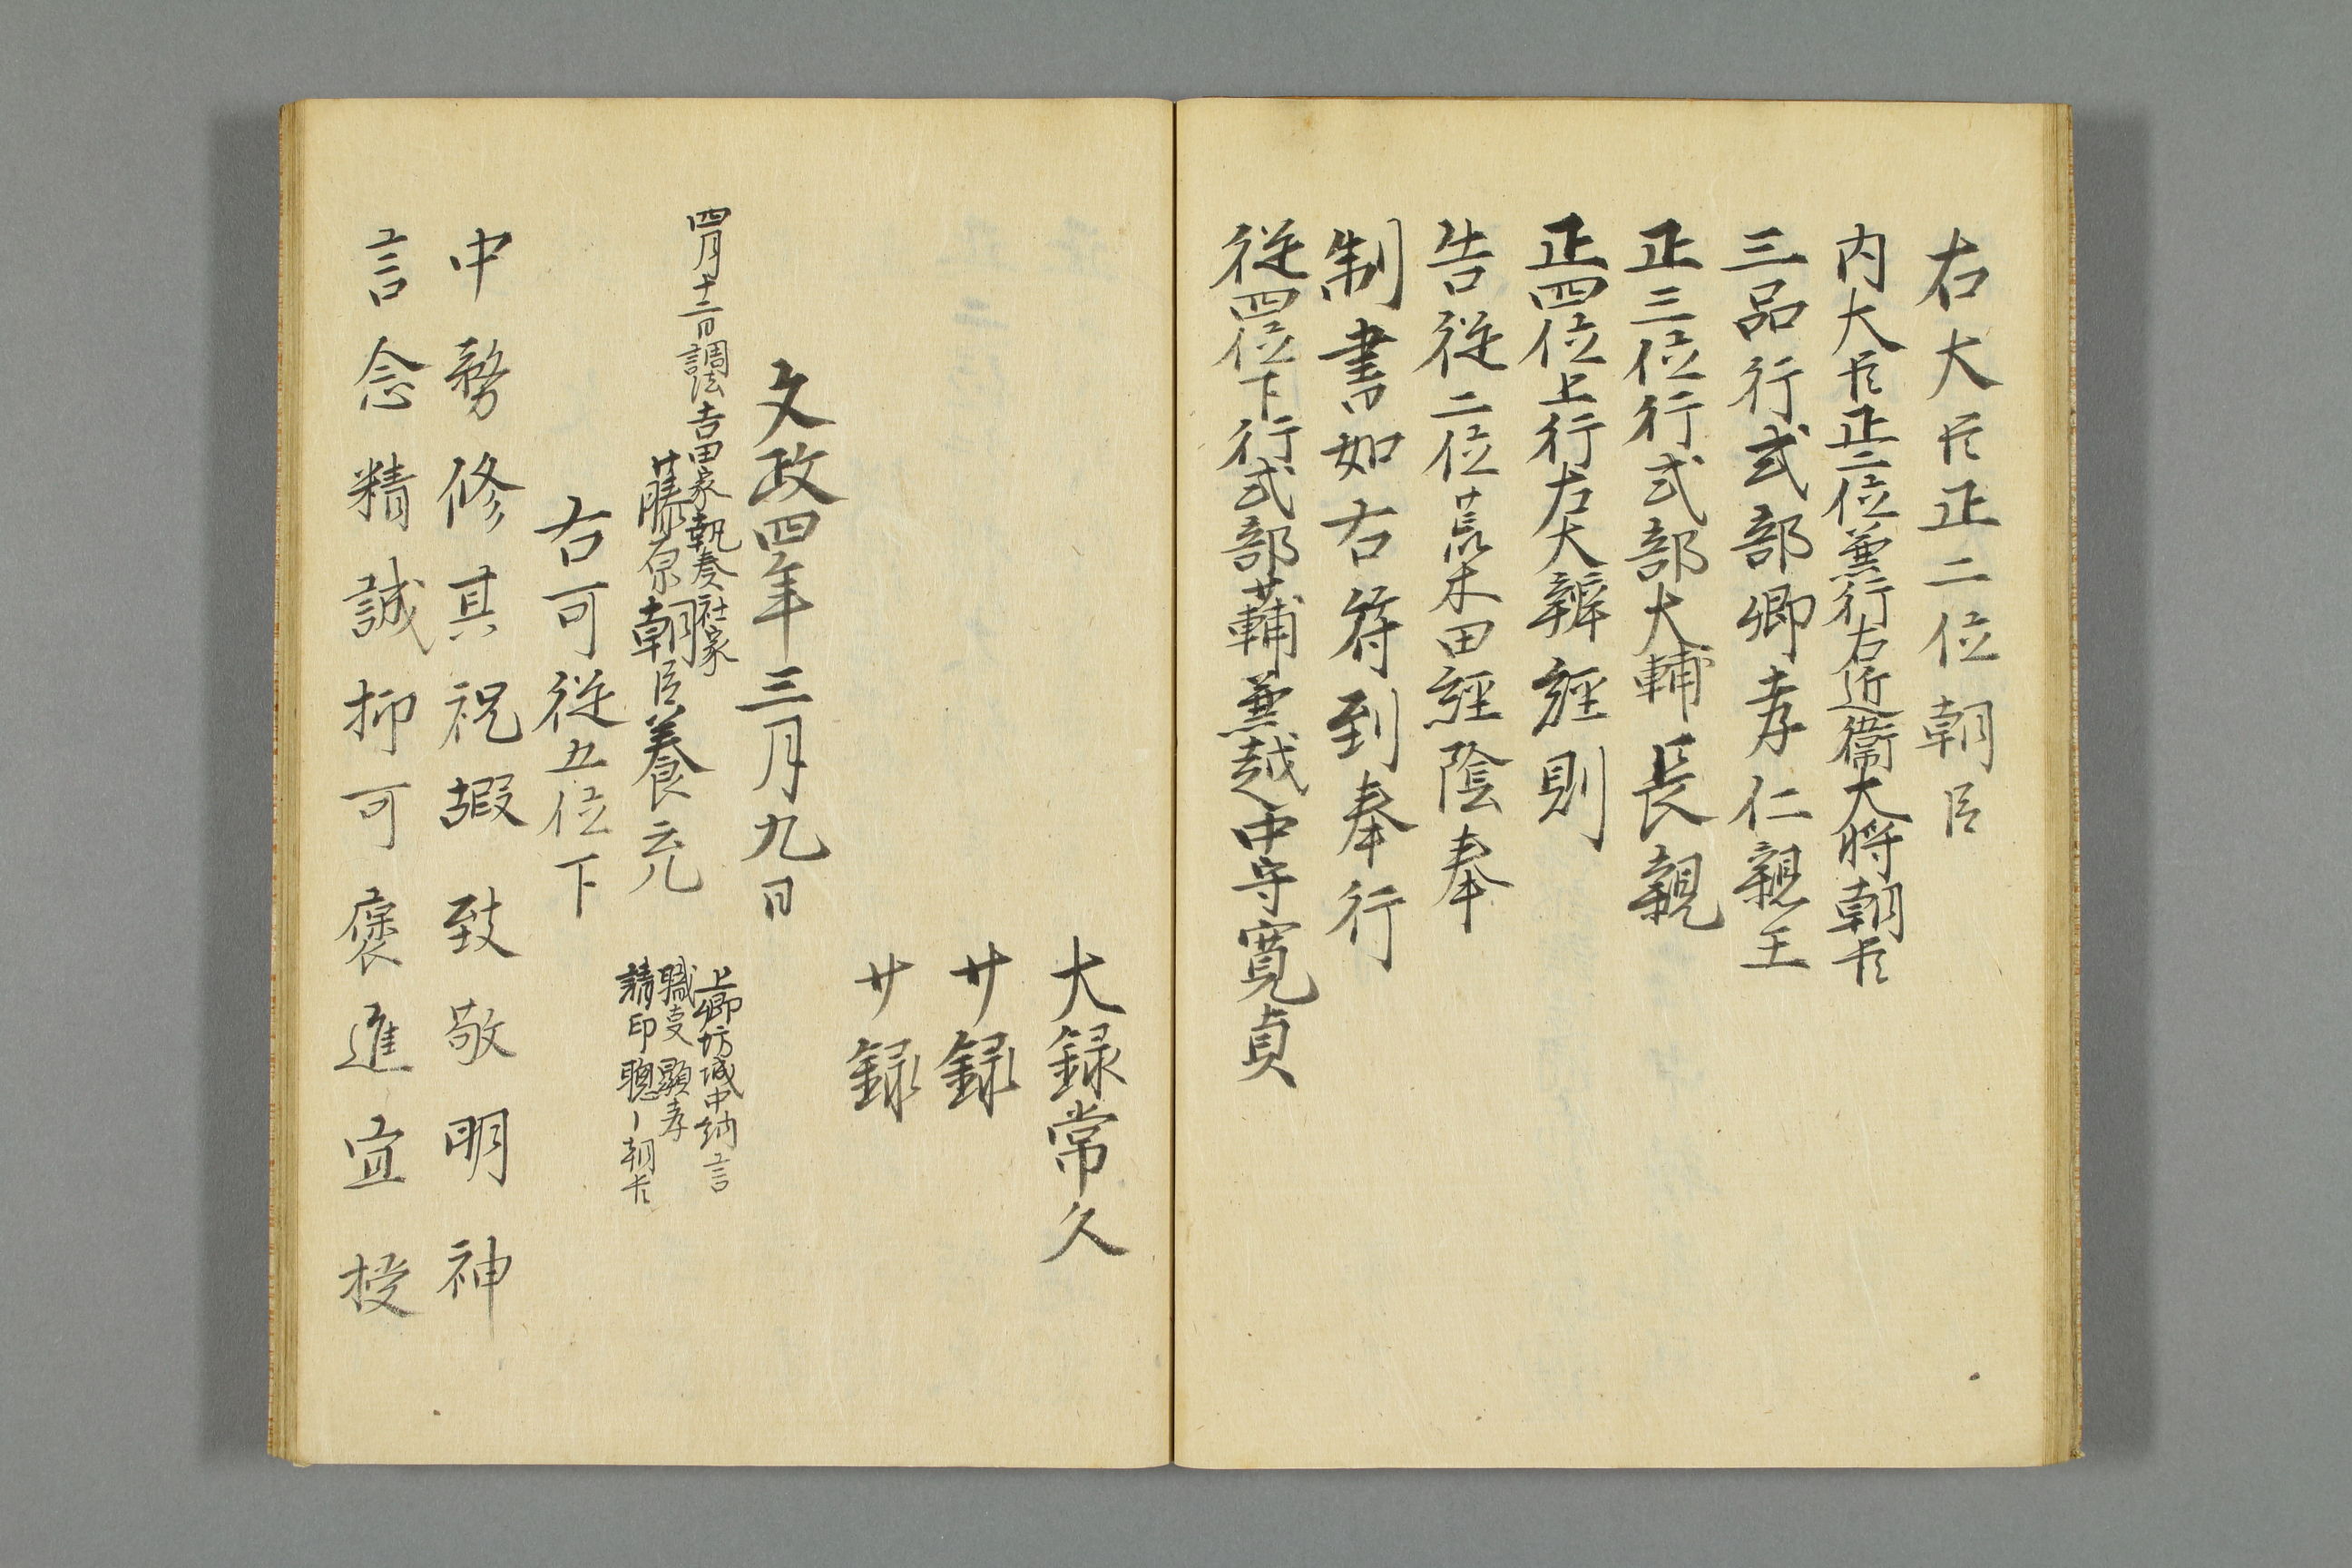 右大臣正二位朝臣
内大臣正二位兼行右近衛大将朝臣
三品行式部卿孝仁親王
正三位行式部大輔長親
正四位上行右大辨經則
告従二位荒木田經陰奉
制書如右符到奉行
従四位下行式部少輔兼越中守寛貞
大録常久
少録
少録
文政四年三月九日
四月十二日調法吉田家執奏社家
藤原朝臣養元
上卿坊城中納言
職事顕孝
請印聰〻朝臣
右可従五位下
中務修其祝嘏致敬明神
言念精誠抑可褒進宜授